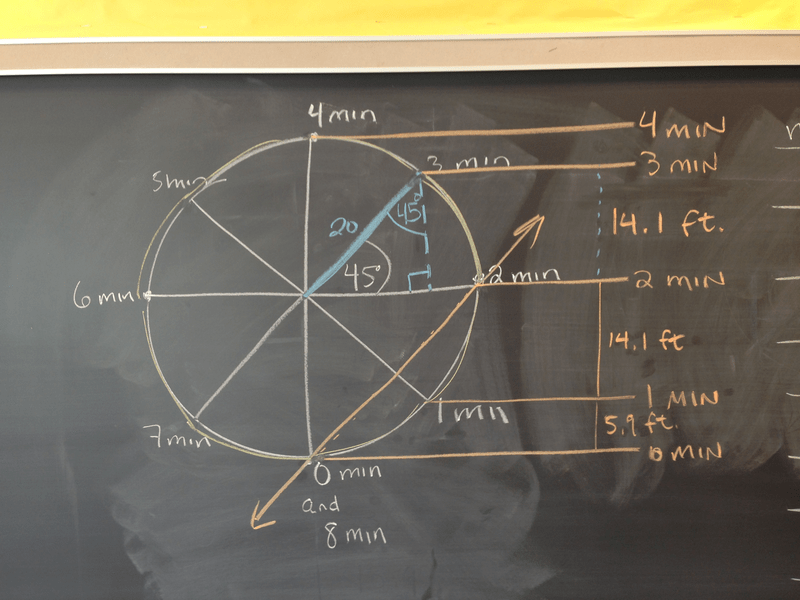 4 min
4 MIN
3 min
3 MIN
5min
20
45°
14.1 ft.
45°
2 min
2 MIN
6 min
14.1 ft
1 min
1 MIN
5.9 ft.
7min
0 min
0 MIN
and
8 min